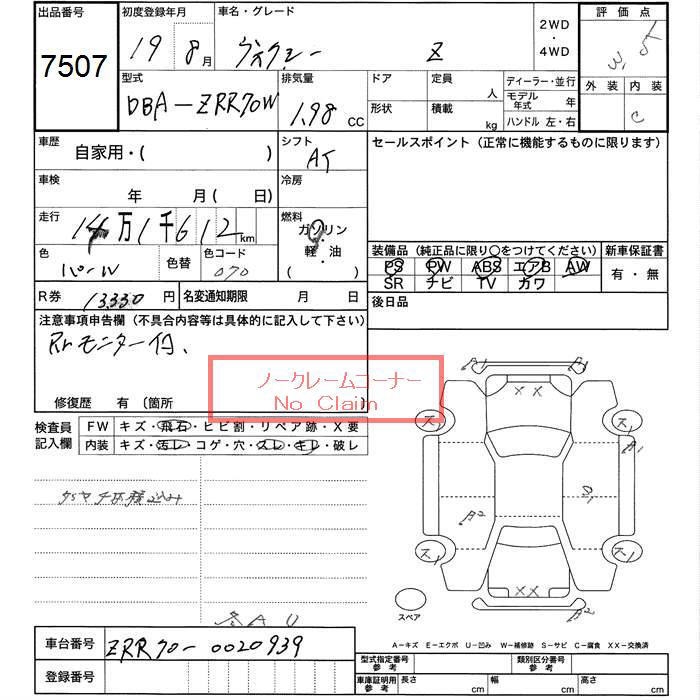 出品番号
7507
初度登録年月
19 8月
車名・グレード
ヴォクシー Z
2WD
・
4WD
評価点
3.5
外装 内装
C
型式
DBA-ZRR70W
排気量
1.98 CC
ドア
形状
定員 人
積載 kg
ディーラー・並行
モデル年式 年
ハンドル 左・右
車歴
自家用・( )
シフト
AT
セールスポイント(正常に機能するものに限ります)
車検
年 月(日)
冷房
走行
14万1千612km
燃料
ガソリン
・
軽・油
( )
色
パールW
色替
色コード
070
装備品(純正品に限り○をつけてください)
PS PW ABS エアB AW
SR ナビ TV カワ
新車保証書
有・無
R券 13330円
名変通知期限 月 日
後日品
注意事項申告欄(不具合内容等は具体的に記入して下さい)
Rrモニター付、
ノークレームコーナー
No Claim
修復歴 有〔箇所 〕
検査員
記入欄
FW キズ・飛石・ヒビ割・リペア跡・X要
内装 キズ・汚レ・コゲ・穴・スレ・キレ・破レ
A1 A1
XX
ス1 ス1
A1
A2
ス1 ス1
XX
A2
スペア
A-キズ E-エクボ U-凹み W-補修跡 S-サビ C-腐食 XX-交換済
車台番号 ZRR70-0020939
登録番号
型式指定番号
参考
類別区分番号
参考
車庫証明用
参考
長さ cm 幅 cm 高さ cm